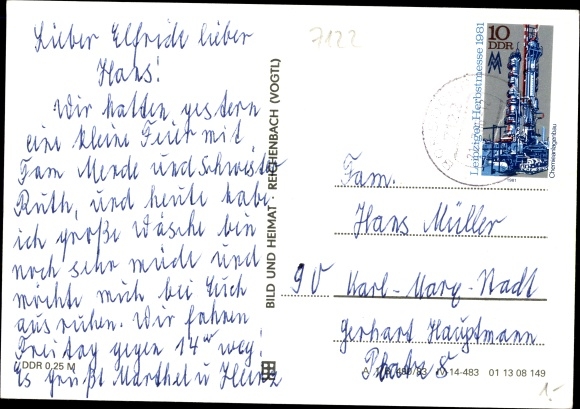 Lieber Elfride lieber
Hans!
Wir hatten gestern
eine kleine Feier mit
Fam Mende und Schwester
Ruth, und heute habe
ich große Wäsche bin
noch sehr müde und
möchte mich bei Euch
ausruhen. Wir fahren
Freitag gegen 14 weg!
Es grüßt Marthel u Heinz
DDR 0,25 M
7122
BILD UND HEIMAT REICHENBACH (VOGTL)
10
DDR
MM
Leipziger Herbstmesse 1981
Chemieanlagenbau
1981
Fam.
Hans Müller
90 Karl-Marx-Stadt
Gerhart Hauptmann
Platz 8
IV-14-483 01 13 08 149
1.-